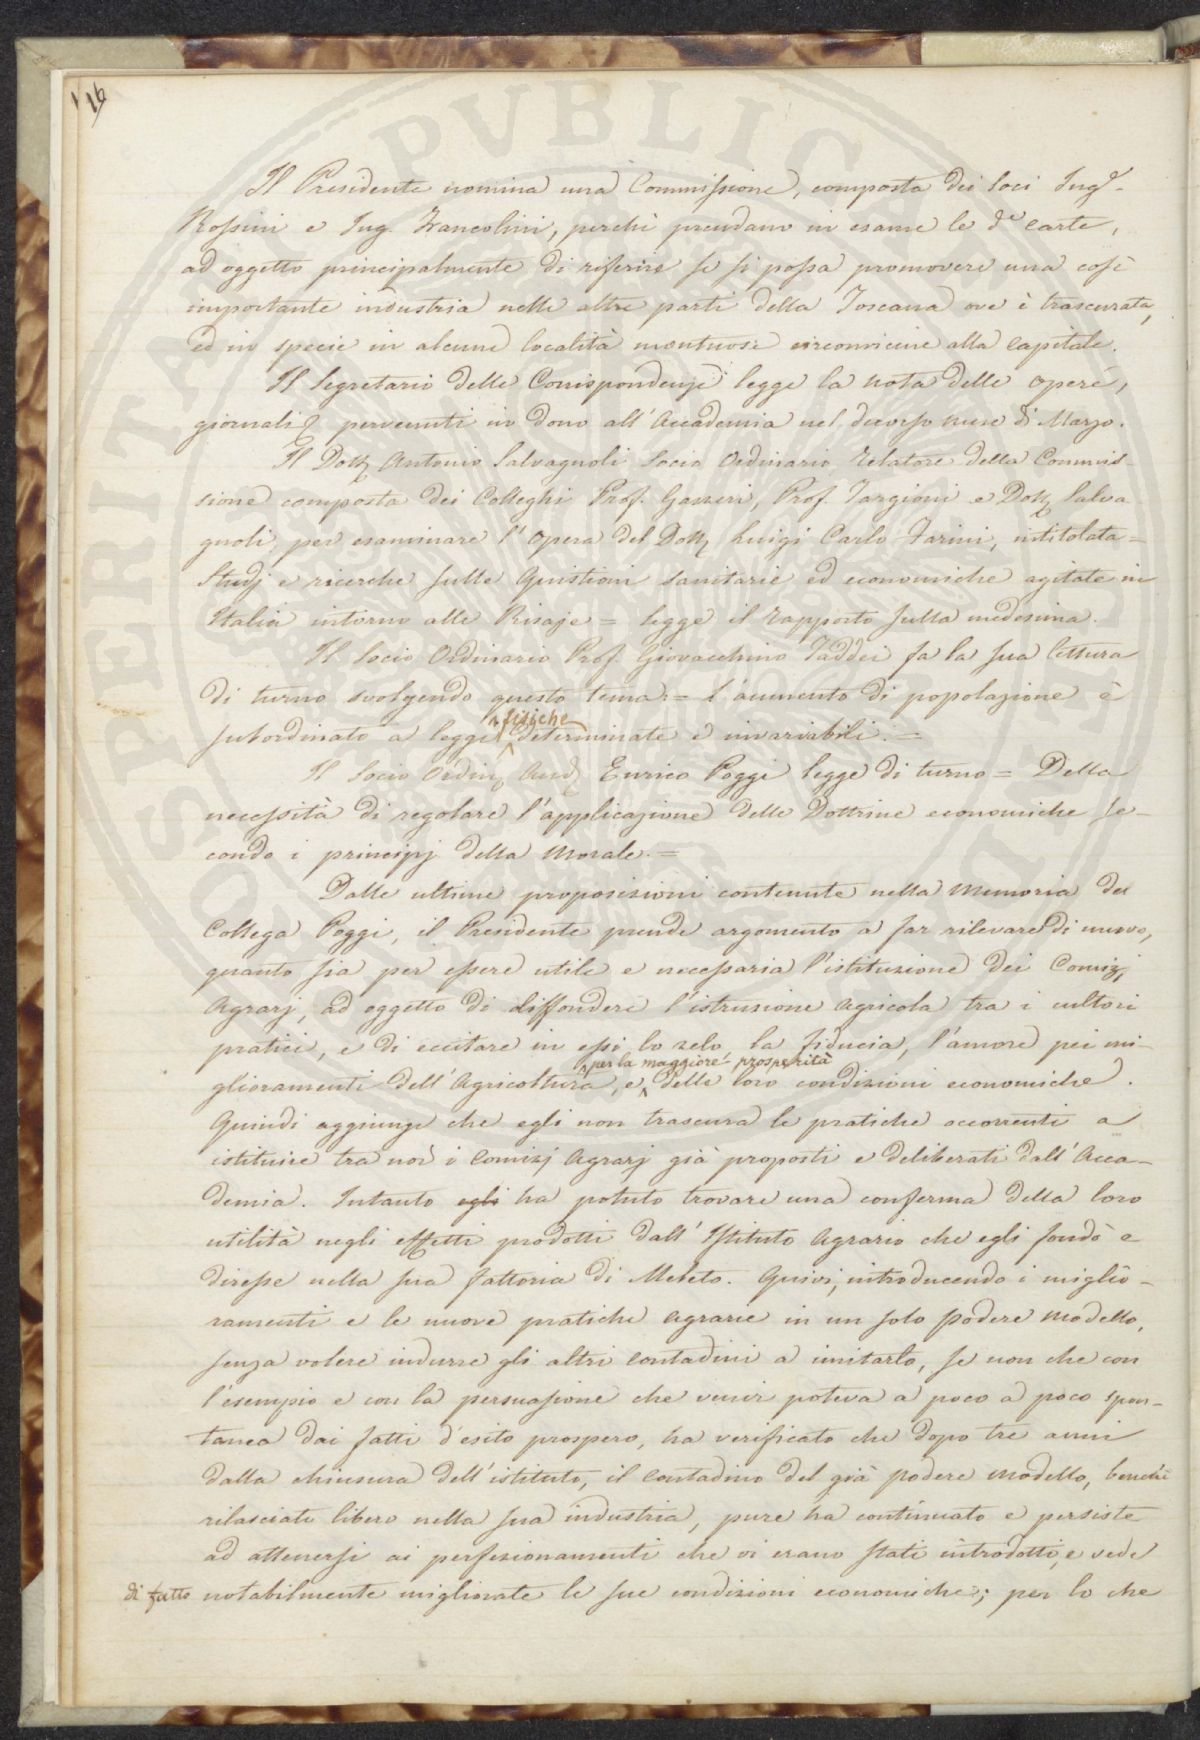 116
Il Presidente nomina una Commissione, composta dei Soci Ing.e
Rossini e Ing. Francolini, perchè prendano in esame le d.e carte,
ad oggetto principalmente di riferire se si possa promovere una così
importante industria nelle altre parti della Toscana ove è trascurata,
ed in specie in alcune località montuose circonvicine alla Capitale.
Il Segretario delle Corrispondenze legge la nota delle opere,
giornali pervenuti in dono all'Accademia nel decorso mese di Marzo.
Il Dott. Antonio Salvagnoli Socio Ordinario Relatore della Commis-
sione composta dei Colleghi Prof. Gazzeri, Prof. Targioni e Dott. Salva
gnoli, per esaminare l'opera del Dott. Luigi Carlo Farini, intitolata =
Studj e ricerche sulle Quistioni sanitarie ed economiche agitate in
Italia intorno alle Risaje = legge il rapporto sulla medesima.
Il Socio Ordinario Prof. Giovacchino Taddei fa la sua lettura
di turno svolgendo questo tema: = l'aumento di popolazione è
fisiche
subordinato a leggi determinate e invariabili. =
Il Socio Ordin. Aud. Enrico Poggi legge di turno = Della
necessità di regolare l'applicazione delle Dottrine economiche se-
condo i principj della Morale. =
Dalle ultime proposizioni contenute nella Memoria del
Collega Poggi, il Presidente prende argomento a far rilevare di nuovo,
quanto sia per essere utile e necessaria l'istituzione dei Comizj
Agrarj, ad oggetto di diffondere l'istruzione agricola tra i cultori
pratici, e di eccitare in essi lo zelo, la fiducia, l'amore pei mi-
per la maggiore prosperità
glioramenti dell'Agricoltura, e delle loro condizioni economiche.
Quindi aggiunge che egli non trascura le pratiche occorrenti a
istituire tra noi i Comizj Agrarj già proposti e deliberati dall'Acca-
demia. Intanto egli ha potuto trovare una conferma della loro
utilità negli effetti prodotti dall'Istituto Agrario che egli fondò e
diresse nella sua fattoria di Meleto. Quivi, introducendo i miglio-
ramenti e le nuove pratiche agrarie in un solo podere modello,
senza volere indurre gli altri contadini a imitarlo, se non che con
l'esempio e con la persuasione che venir poteva a poco a poco spon-
tanea dai fatti d'esito prospero, ha verificato che dopo tre anni
dalla chiusura dell'istituto, il contadino del già podere modello, benchè
rilasciato libero nella sua industria, pure ha continuato e persiste
ad attenersi ai perfezionamenti che vi erano stati introdotti, e vede
di fatto notabilmente migliorate le sue condizioni economiche; per lo che